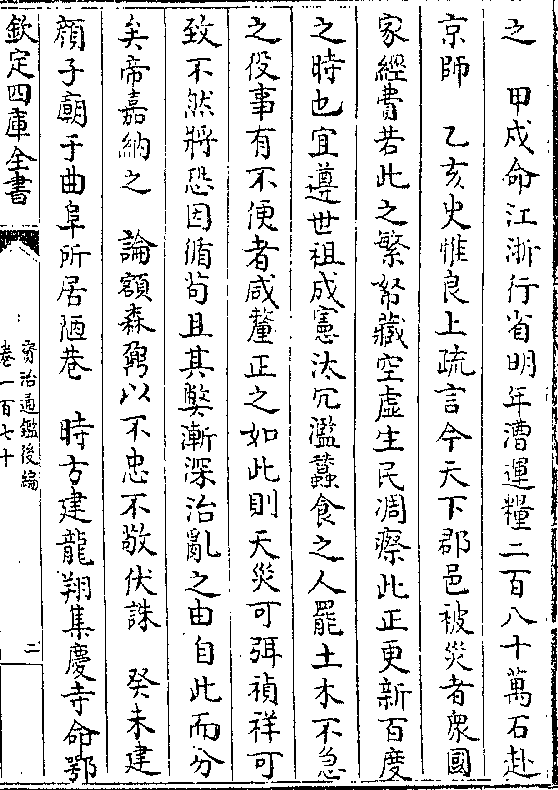 之　甲戌命江浙行省明年漕運糧二百八十萬石赴
京師　乙亥史惟良上疏言今天下郡邑被災者衆國
家經費若此之繁帑藏空虛生民凋瘵此正更新百度
之時也宜遵世祖成憲汰冗濫蠶食之人罷土木不急
之役事有不便者咸釐正之如此則天災可弭禎祥可
致不然將恐因循茍且其弊漸深治亂之由自此而分
矣帝嘉納之　論額森弼以不忠不敬伏誅　癸未建
顔子廟于曲阜所居陋巷　時方建龍翔集慶寺命鄂
欽定四庫全書
資治通鑑後編
卷一百七十
二